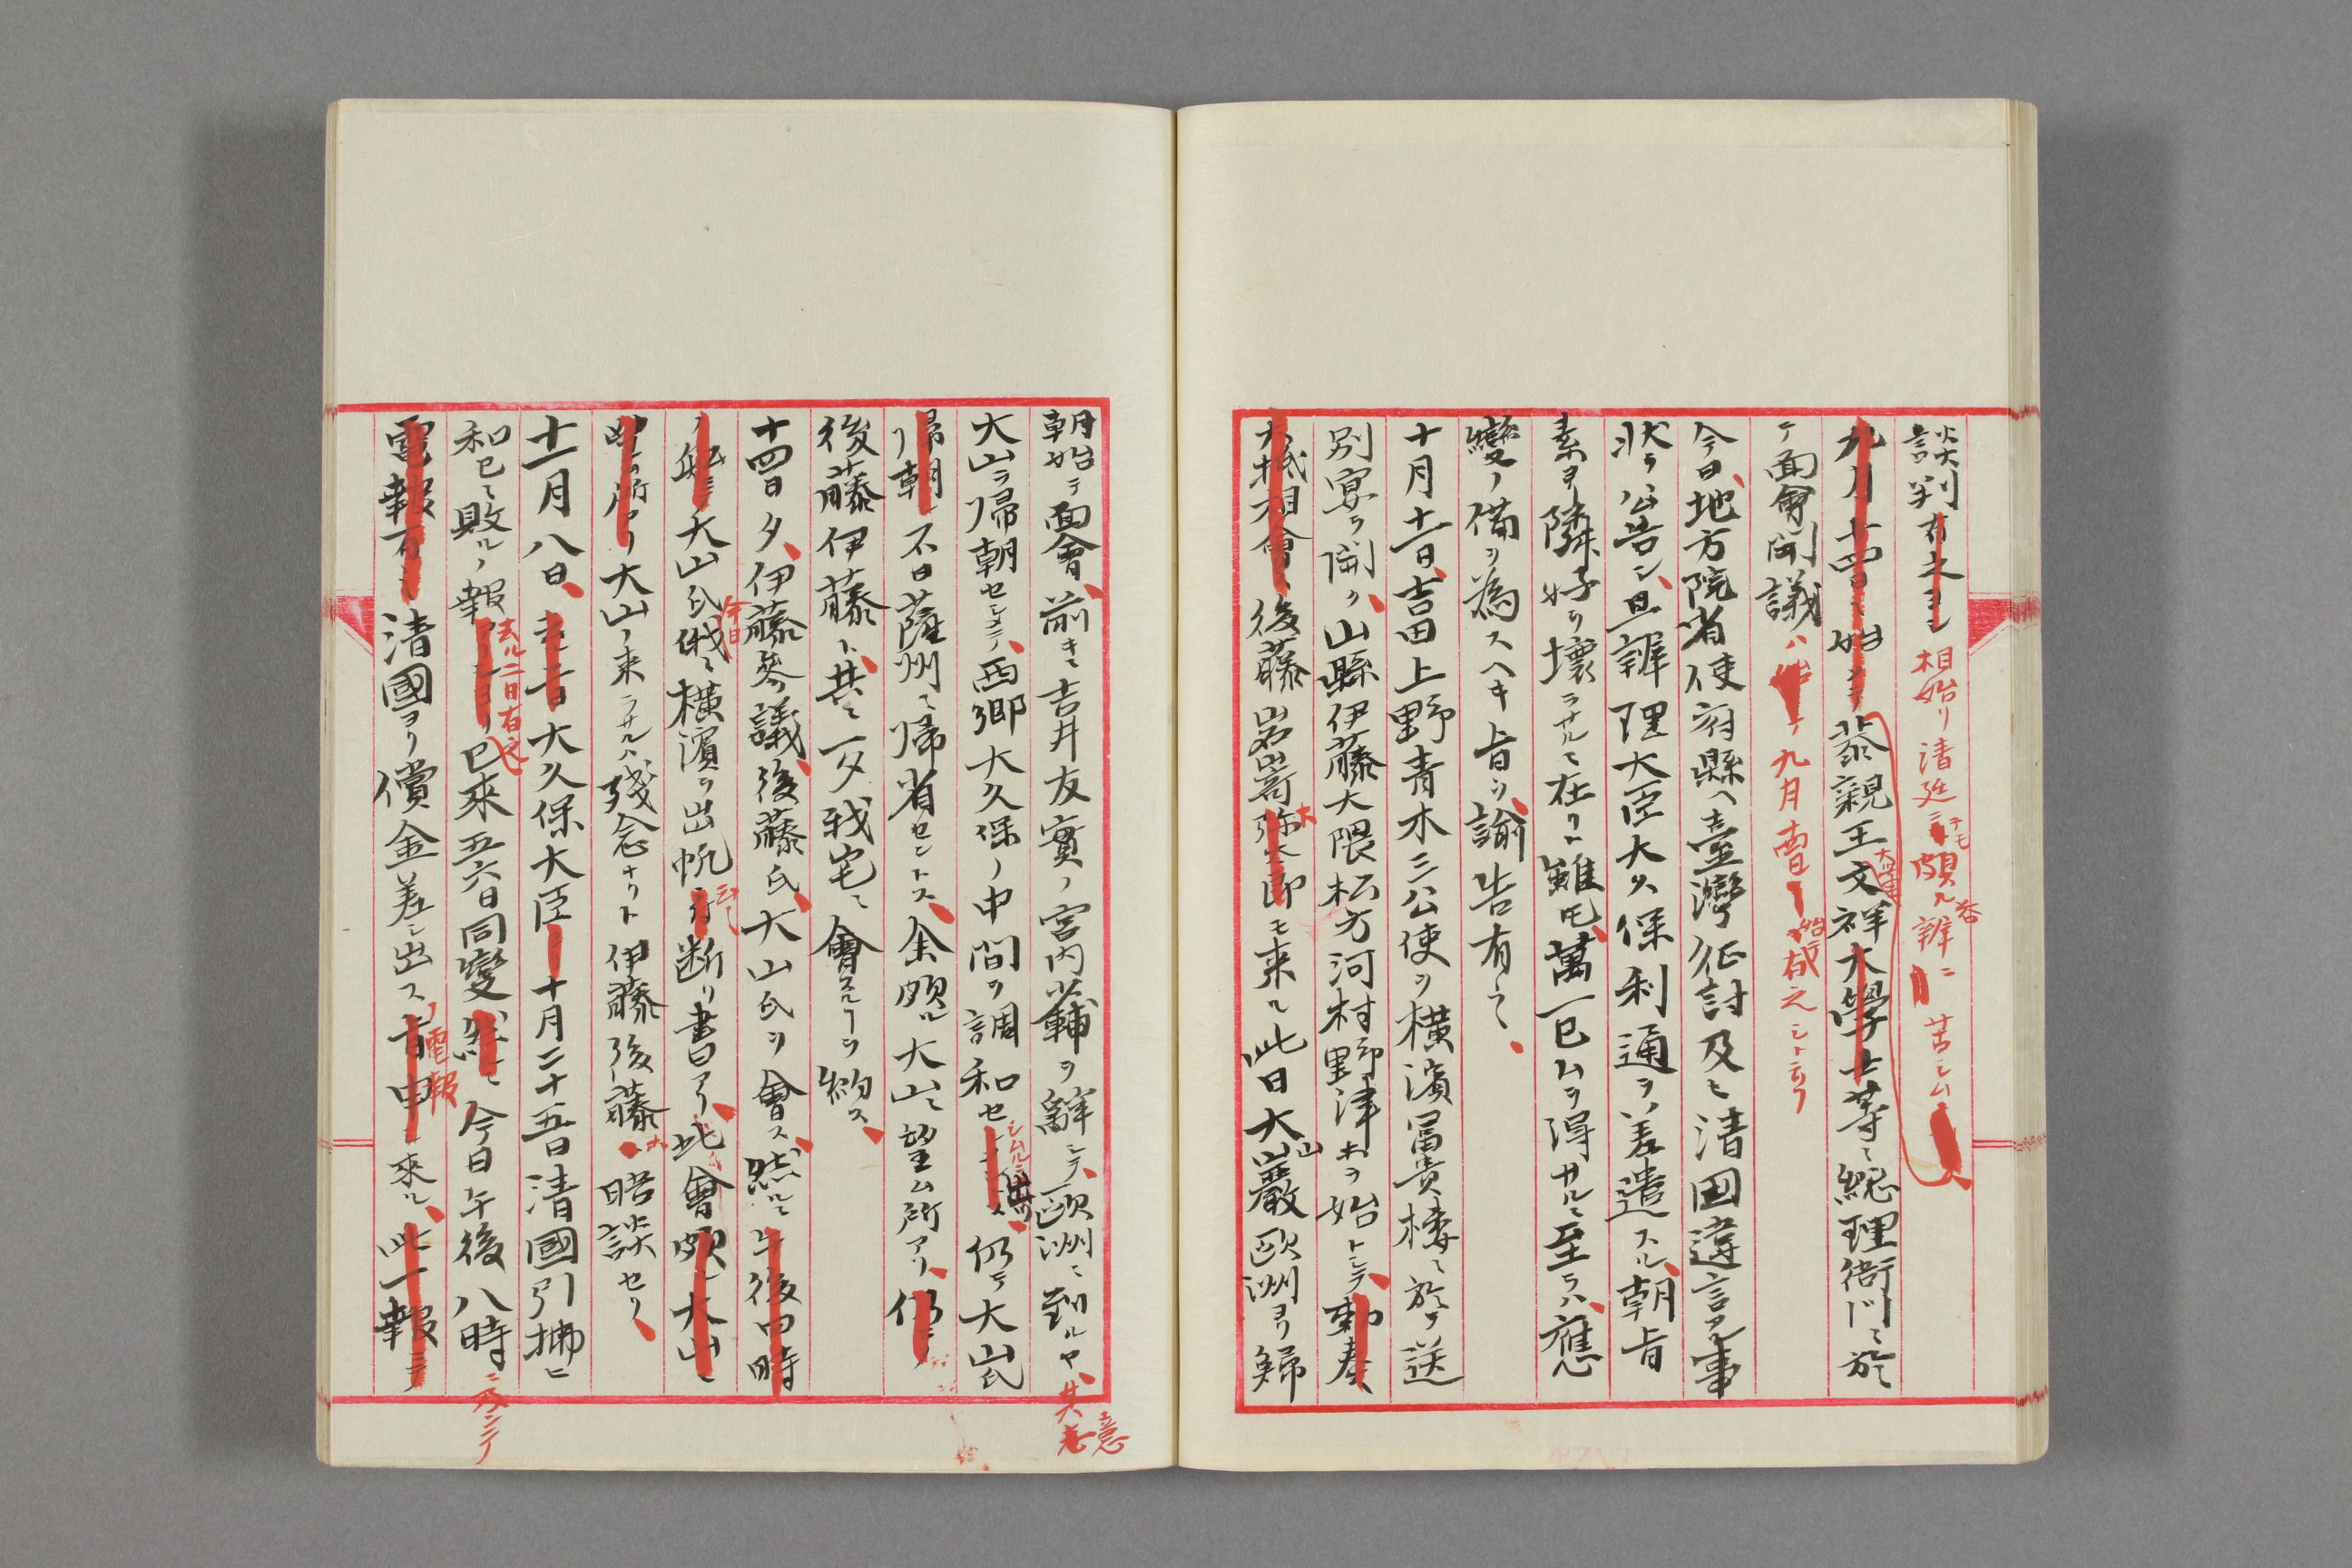 談判有之ヨシ相始リ清廷ニテモ頗ル答辨ニ苦シム
九月十四日ニ始メテ恭親王文祥大學士等ニ總理衙门ニ於
テ面會開議ハ始テ九月
今日地方院省使府縣ヘ臺灣征討及ヒ清国違言アル事
状ヲ公告シ且辨理大臣大久保利通ヲ差遣スル朝旨
素ヨリ隣好ヲ壊ラサルニ在リト雖モ萬一已ムヲ得サルニ至ラハ應
變ノ備ヲ為スヘキ旨ヲ諭告有ラ
十月十一日吉田上野青木三公使ヲ横濱冨貴楼ニ於テ送
別宴ヲ開ク山縣伊藤大隈松方河村野津ホヲ始トシテ勅奏
大抵相會ス後藤岩嵜弥太郎モ来ル此日大山巖歐洲ヨリ歸
朝始テ面會前キニ吉井友實ノ宮内少輔ヲ辞シテ歐洲ニ到ルヤ其意
大山ヲ帰朝セシメテ西郷大久保ノ中間ヲ調和セシムルニ仍テ大山氏
帰朝シ不日薩州ニ帰省セントス余頗ル大山ニ望ム所アリ仍テ
後藤伊藤ト共ニ一夕我宅ニ會スルヿヲ約ス
十四日夕伊藤參議後藤氏大山氏ヲ會ス然ルニ午後四時
ノ船ニテ大山氏今日俄ニ横濱ヲ出帆ニ付断リ書アリ此會頗ル大山ニ
望ム所アリ大山ノ来ラサルハ殘念ナリト伊藤後藤ホ晤談セリ
十一月八日去一日大久保大臣ヨリ十月二十五日清國引拂ヒ
和已ニ敗ルノ報去ル二日有之已来五六日同變然ルニ今日午後八時ニ及ンテ
電報有之清國ヨリ償金差シ出スノ電報旨申来ル此一報ニテ